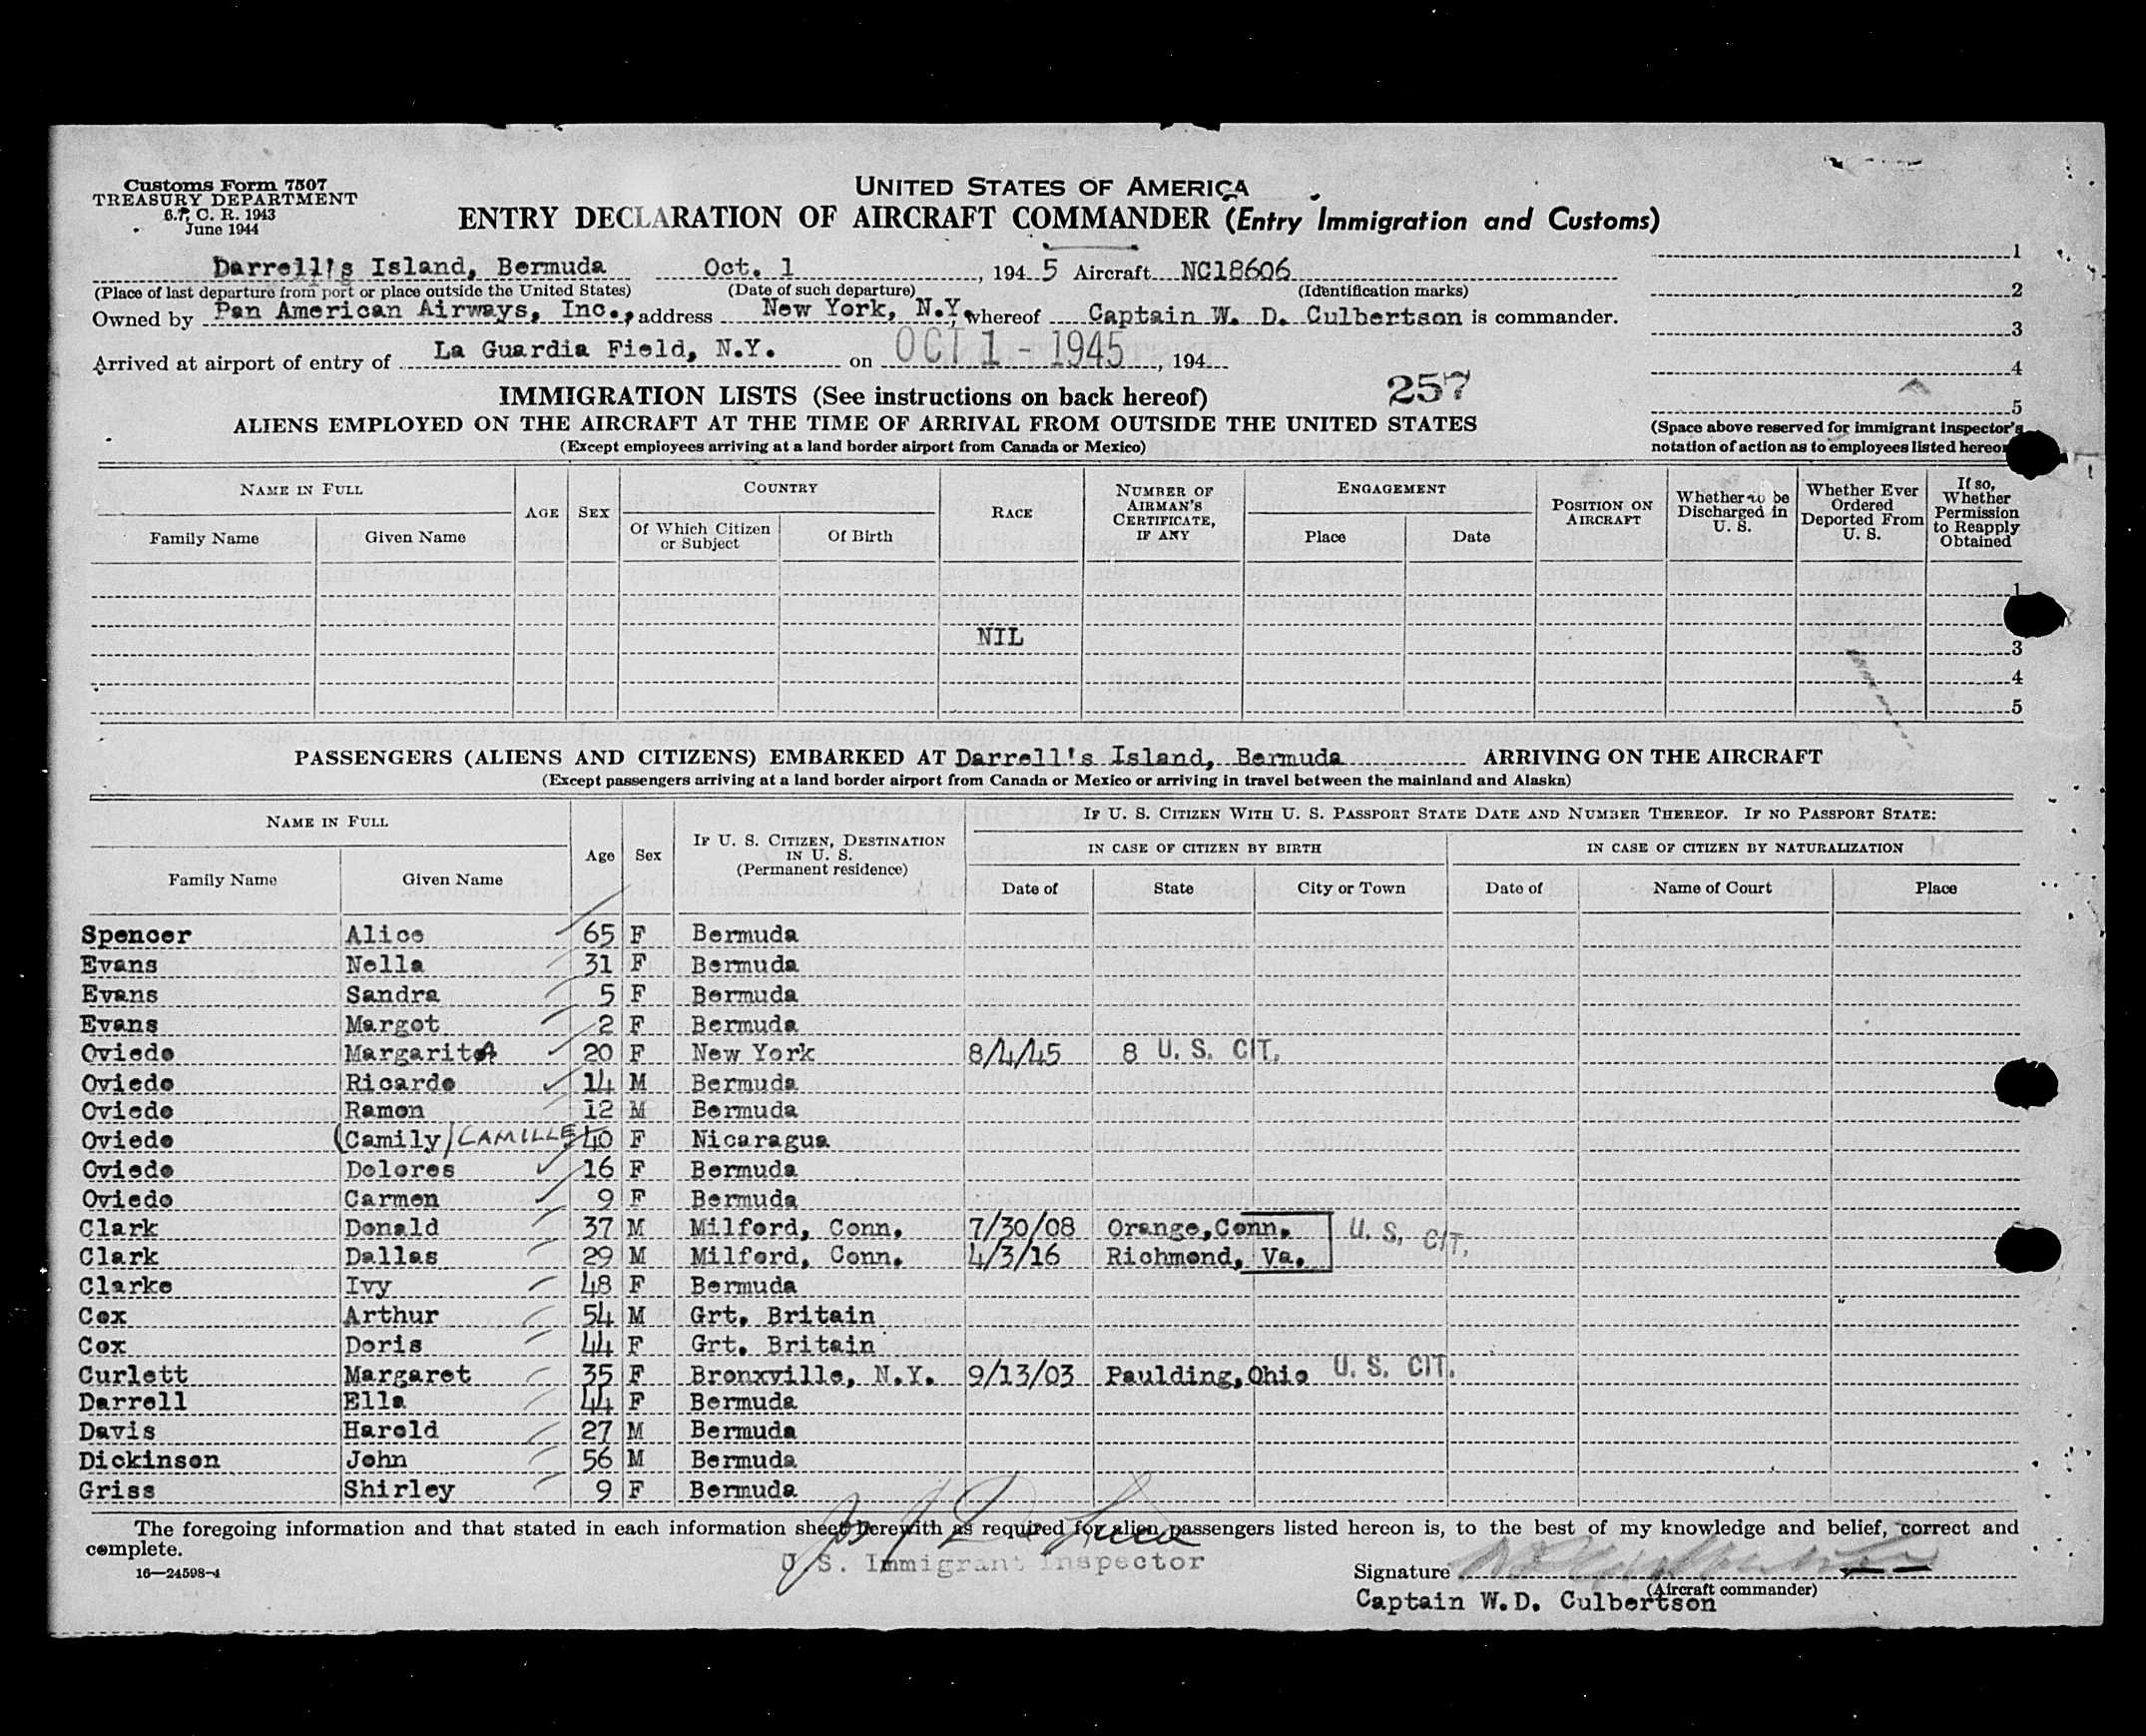 Customs Form 7507
TREASURY DEPARTMENT
6.7, C. R. 1943
June 1944
UNITED STATES OF AMERICA
ENTRY DECLARATION OF AIRCRAFT COMMANDER (Entry Immigration and Customs)
Darrell's Island, Bermuda Oct. 1, 194 5 Aircraft NC18606
(Place of last departure from port or place outside the United States) (Date of such departure) (Identification marks)
Owned by Pan American Airways, Inc., address New York, N.Y. whereof Captain W. D. Culbertson is commander.
Arrived at airport of entry of La Guardia Field, N.Y. on OCT 1 - 1945, 194
1
2
3
4
5
(Space above reserved for immigrant inspector's
notation of action as to employees listed hereon
IMMIGRATION LISTS (See instructions on back hereof) 257
ALIENS EMPLOYED ON THE AIRCRAFT AT THE TIME OF ARRIVAL FROM OUTSIDE THE UNITED STATES
(Except employees arriving at a land border airport from Canada or Mexico)
NAME IN FULL
Family Name Given Name
AGE SEX
COUNTRY
Of Which Citizen or Subject Of Birth
RACE
NUMBER OF AIRMAN'S CERTIFICATE, IF ANY
ENGAGEMENT
Place Date
POSITION ON AIRCRAFT
Whether to be Discharged in U. S.
Whether Ever Ordered Deported From U. S.
If so, Whether Permission to Reapply Obtained
1
NIL
3
4
5
PASSENGERS (ALIENS AND CITIZENS) EMBARKED AT Darrell's Island, Bermuda ARRIVING ON THE AIRCRAFT
(Except passengers arriving at a land border airport from Canada or Mexico or arriving in travel between the mainland and Alaska)
NAME IN FULL
Family Name Given Name
Age Sex
IF U. S. CITIZEN, DESTINATION IN U. S. (Permanent residence)
IF U. S. CITIZEN WITH U. S. PASSPORT STATE DATE AND NUMBER THEREOF. IF NO PASSPORT STATE:
IN CASE OF CITIZEN BY BIRTH IN CASE OF CITIZEN BY NATURALIZATION
Date of State City or Town Date of Name of Court Place
Spencer Alice 65 F Bermuda
Evans Nella 31 F Bermuda
Evans Sandra 5 F Bermuda
Evans Margot 2 F Bermuda
Oviedo Margarita 20 F New York 8/4/45 8 U. S. CIT.
Oviedo Ricardo 14 M Bermuda
Oviedo Ramon 12 M Bermuda
Oviedo (Camily) CAMILLE 40 F Nicaragua
Oviedo Dolores 16 F Bermuda
Oviedo Carmen 9 F Bermuda
Clark Donald 37 M Milford, Conn. 7/30/08 Orange, Conn. U. S. CIT.
Clark Dallas 29 M Milford, Conn. 4/3/16 Richmond, Va.
Clarke Ivy 48 F Bermuda
Cox Arthur 54 M Grt. Britain
Cox Doris 44 F Grt. Britain
Curlett Margaret 35 F Bronxville, N.Y. 9/13/03 Paulding, Ohio U. S. CIT.
Darrell Ella 44 F Bermuda
Davis Harold 27 M Bermuda
Dickinson John 56 M Bermuda
Griss Shirley 9 F Bermuda
The foregoing information and that stated in each information sheet herewith as required for alien passengers listed hereon is, to the best of my knowledge and belief, correct and
complete.
16—24598-4
U. S. Immigrant Inspector
Signature
(Aircraft commander)
Captain W.D. Culbertson